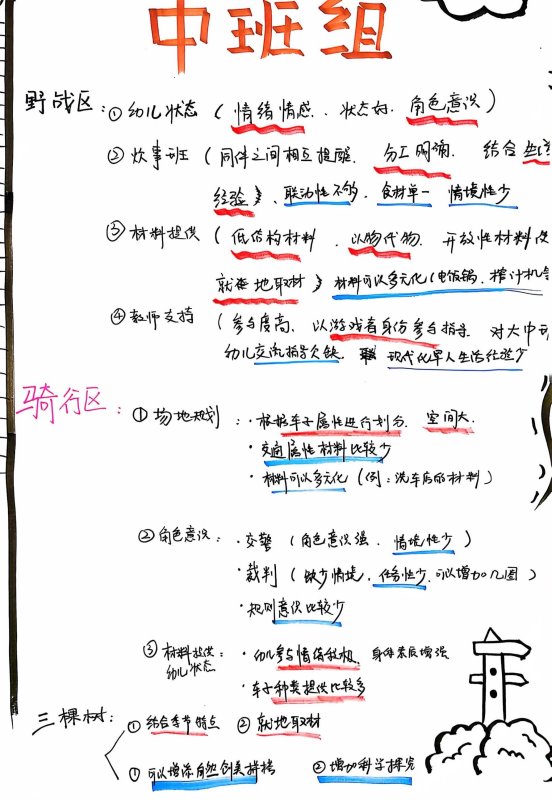 中班组
野战区：①幼儿状态（情绪情感、状态好、角色意识）
②炊事班（同伴之间相互提醒、分工明确、结合生活
经验）、联动性不够、食材单一、情境性少
③材料提供（低结构材料、以物代物、开放性材料
就地取材）材料可以多元化（电饭锅、榨汁机
④教师支持（参与度高、以游戏者身份参与指导、对大中
幼儿交流指导欠缺、现代化军人生活化
骑行区：①场地规划：·根据车子属性进行划分、空间大、
·交通属性材料比较少
·材料可以多元化（例：洗车店的材料）
②角色意识：·交警（角色意识强、情境性少）
·裁判（缺少情境、任务性少、可以增加
·规则意识比较少
③材料提供：·幼儿参与情绪积极、身体素质增强
幼儿状态 ·车子种类提供比较多
三棵树：①结合季节特点 ②就地取材
①可以增添自然创美 ②增加科学探究